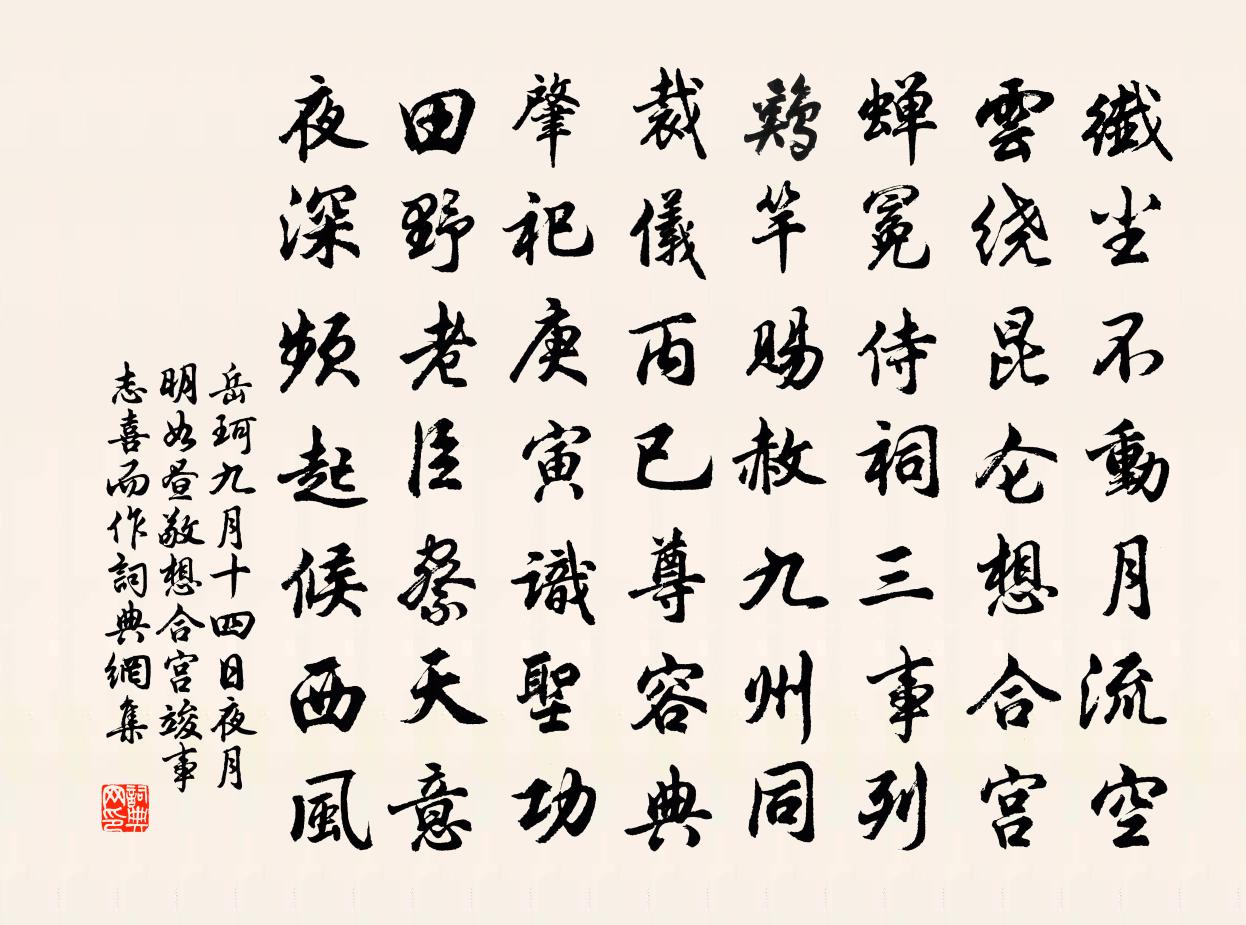 纖尘不動月流空
雲绕昆仑想合宫
蝉冕侍祠三事列
鷄竿赐赦九州同
裁儀丙已尊容典
肇祀庚寅識聖功
田野老臣察天意
夜深频起候西風
岳珂九月十四日夜月
明如昼敬想合宫竣事
志喜而作詞典網集
詞典网印